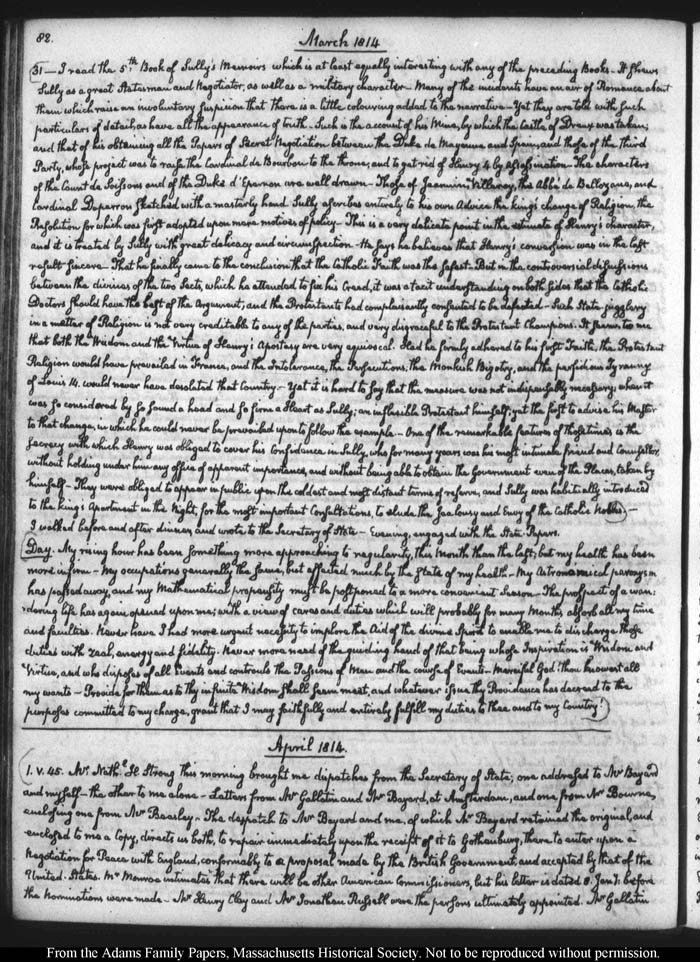 82.
March 1814
31— I read the 5th Book of Sully's Memoirs which is at least equally interesting with any of the preceding Books— It shews
Sully as a great Statesman and Negotiator, as well as a military character— Many of the incidents have an air of Romance about
them which raise an involuntary suspicion that there is a little colouring added to the narrative— Yet they are told with such
particulars of detail, as have all the appearance of truth— Such is the account of his Mine, by which the Castle of Dreux was taken;
and that of his obtaining all the Papers of Secret Negotiation between the Duke de Mayenne and Spain; and those of the third
Party, whose project was to raise the Cardinal de Bourbon to the throne, and to get rid of Henry 4 by assassination— The characters
of the Count de Soissons and of the Duke d'Epernon are well drawn— Those of Jeannin, Villeroy, the Abbé de Bellozane, and
Cardinal Duperron sketched with a masterly hand. Sully ascribes entirely to his own Advice the king's change of Religion, the
Resolution for which was first adopted upon mere motives of policy— This is a very delicate point in the estimate of Henry's character,
and it is treated by Sully with great delicacy and circumspection— He says he believes that Henry's conversion was in the last
result sincere— That he finally came to the conclusion that the Catholic Faith was the safest— But in the controversial discussions
between the divines of the two Sects, which he attended to fix his Creed, it was a tacit understanding on both sides that the Catholic
Doctors should have the best of the Argument; and the Protestants had complaisantly consented to be defeated— Such State-jugglery
in a matter of Religion is not very creditable to any of the parties, and very disgraceful to the Protestant Champions. It seems to me
that both the Wisdom and the Virtue of Henry's Apostacy are very equivocal. Had he firmly adhered to his first Faith, the Protestant
Religion would have prevailed in France, and the Intolerance, the Persecutions, the Monkish Bigotry, and the perfidious Tyranny
of Louis 14. would never have desolated that Country— Yet it is hard to say that the measure was not indispensably necessary, when it
was so considered by so sound a head and so firm a Heart as Sully; an inflexible Protestant himself; yet the first to advise his Master
to that change, in which he could never be prevailed upon to follow the example— One of the remarkable features of those times, is the
secrecy with which Henry was obliged to cover his Confidence in Sully, who for many years was his most intimate friend and Counsellor,
without holding under him any office of apparent importance, and without being able to obtain the Government even of the Places, taken by
himself— They were obliged to appear in public upon the coldest and most distant terms of reserve, and Sully was habitually introduced
to the king's Apartment in the Night, for the most important Consultations, to elude the Jealousy and Envy of the Catholic Nobles—
I walked before and after dinner, and wrote to the Secretary of State— Evening, engaged with the State Papers.
Day. My rising hour has been something more approaching to regularity, this Month than the last; but my health has been
more infirm— My occupations generally the same, but affected much by the State of my health— My Astronomical paroxysm
has passed away, and my Mathematical propensity must be postponed to a more convenient season— The prospect of a wan-
dering life has again opened upon me; with a view of cares and duties which will probably for many Months absorb all my time
and faculties. Never have I had more urgent necessity to implore the Aid of the divine Spirit to enable me to discharge those
duties with zeal, energy and fidelity. Never more need of the guiding hand of that being whose Inspiration is Wisdom and
Virtue, and who disposes of all Events and controuls the Passions of Men and the course of Events— Merciful God! thou knowest all
my wants— Provide for them as to thy infinite Wisdom shall seem meet, and whatever issue thy Providence has decreed to the
purposes committed to my charge, grant that I may faithfully and entirely fulfill my duties to thee and to my Country!
April 1814.
1. V. 45. Mr. Nathl. H. Strong this morning brought me dispatches from the Secretary of State; one addressed to Mr Bayard
and myself— the other to me alone— Letters from Mr Gallatin and Mr Bayard, at Amsterdam, and one from Mr Bourne,
enclosing one from Mr Beasley. The despatch to Mr Bayard and me, of which Mr Bayard retained the original, and
enclosed to me a Copy, directs us both, to repair immediately upon the receipt of it to Gothenburg, there to enter upon a
Negotiation for Peace with England, conformably to a proposal made by the British Government, and accepted by that of the
United-States. Mr Monroe intimates that there will be other American Commissioners, but his letter is dated 8. Jany. before
the Nominations were made— Mr Henry Clay and Mr Jonathan Russell were the persons ultimately appointed. Mr Gallatin
From the Adams Family Papers, Massachusetts Historical Society. Not to be reproduced without permission.